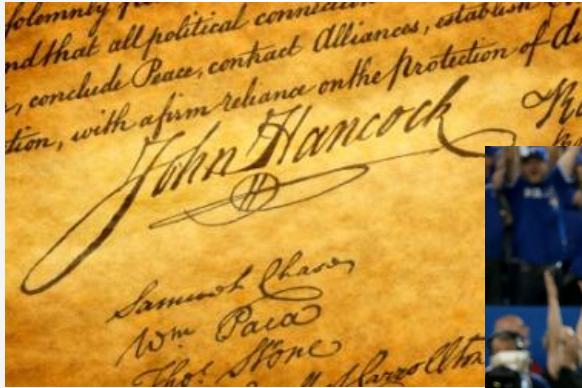 Solemnly
and that all political connection
conclude Peace, contract Alliances, establish
tion, with a firm reliance on the Protection of di
John Hancock
H
Samuel Chase
Wm Paca
Thos Stone
Carrollton